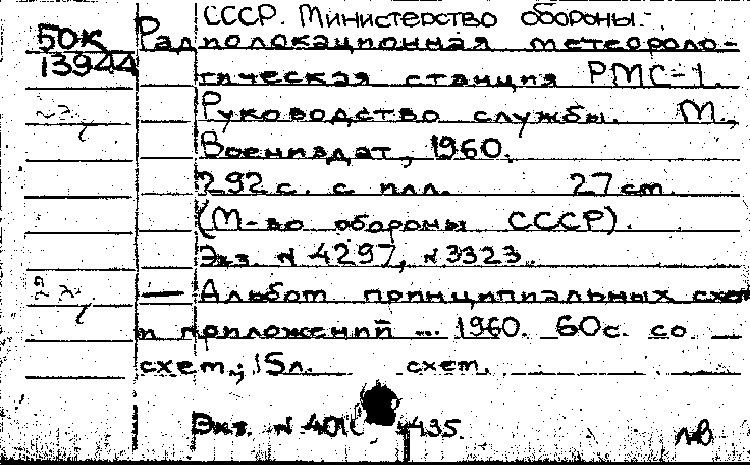 СССР. Министерство обороны.-
50к Радиолокационная метеороло-
13944 гическая станция РМС-1.
Руководство службы. М.,
Воениздат, 1960.
292 с. с илл. 27 см.
(М-во обороны СССР).
Экз. N 4297, N 3323.
— Альбом принципиальных схем
и приложений ... 1960. 60с. со
схем.; 15л. схем.
Экз. N 435.
лв